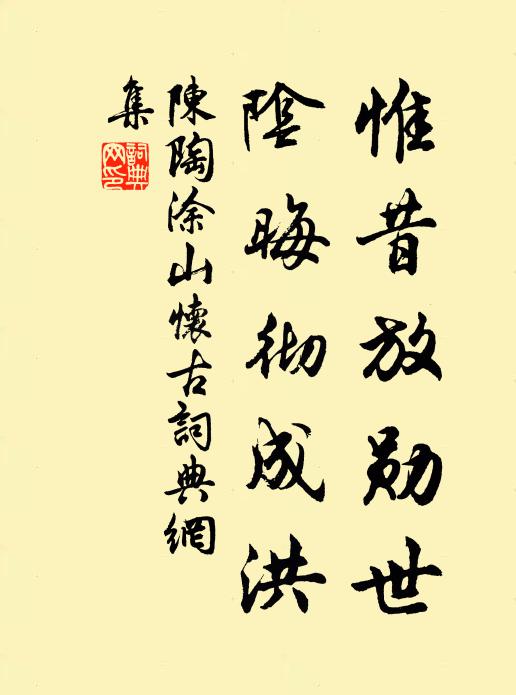 惟昔放勋世
陰晦彻成洪
陳陶涂山懷古詞典網
集
詞典
网印